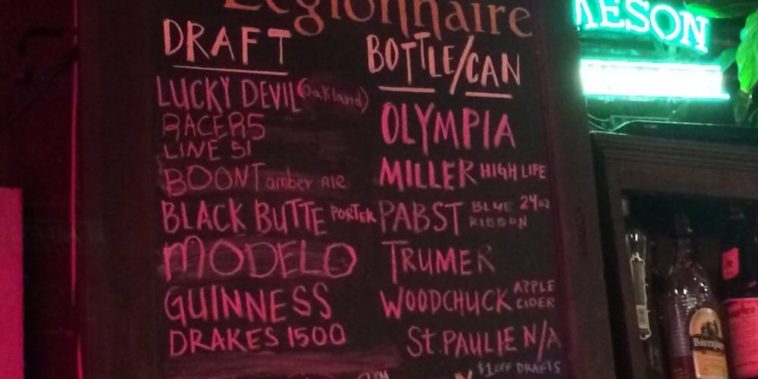 Legionnaire
DRAFT
LUCKY DEVIL (Oakland)
RACER 5
LINE 51
BOONT amber ALE
BLACK BUTTE PORTER
MODELO
GUINNESS
DRAKES 1500
BOTTLE/CAN
OLYMPIA
MILLER HIGH LIFE
PABST BLUE RIBBON 24oz
TRUMER
WOODCHUCK APPLE CIDER
ST. PAULIE N/A
$1 OFF DRAFTS
KESON